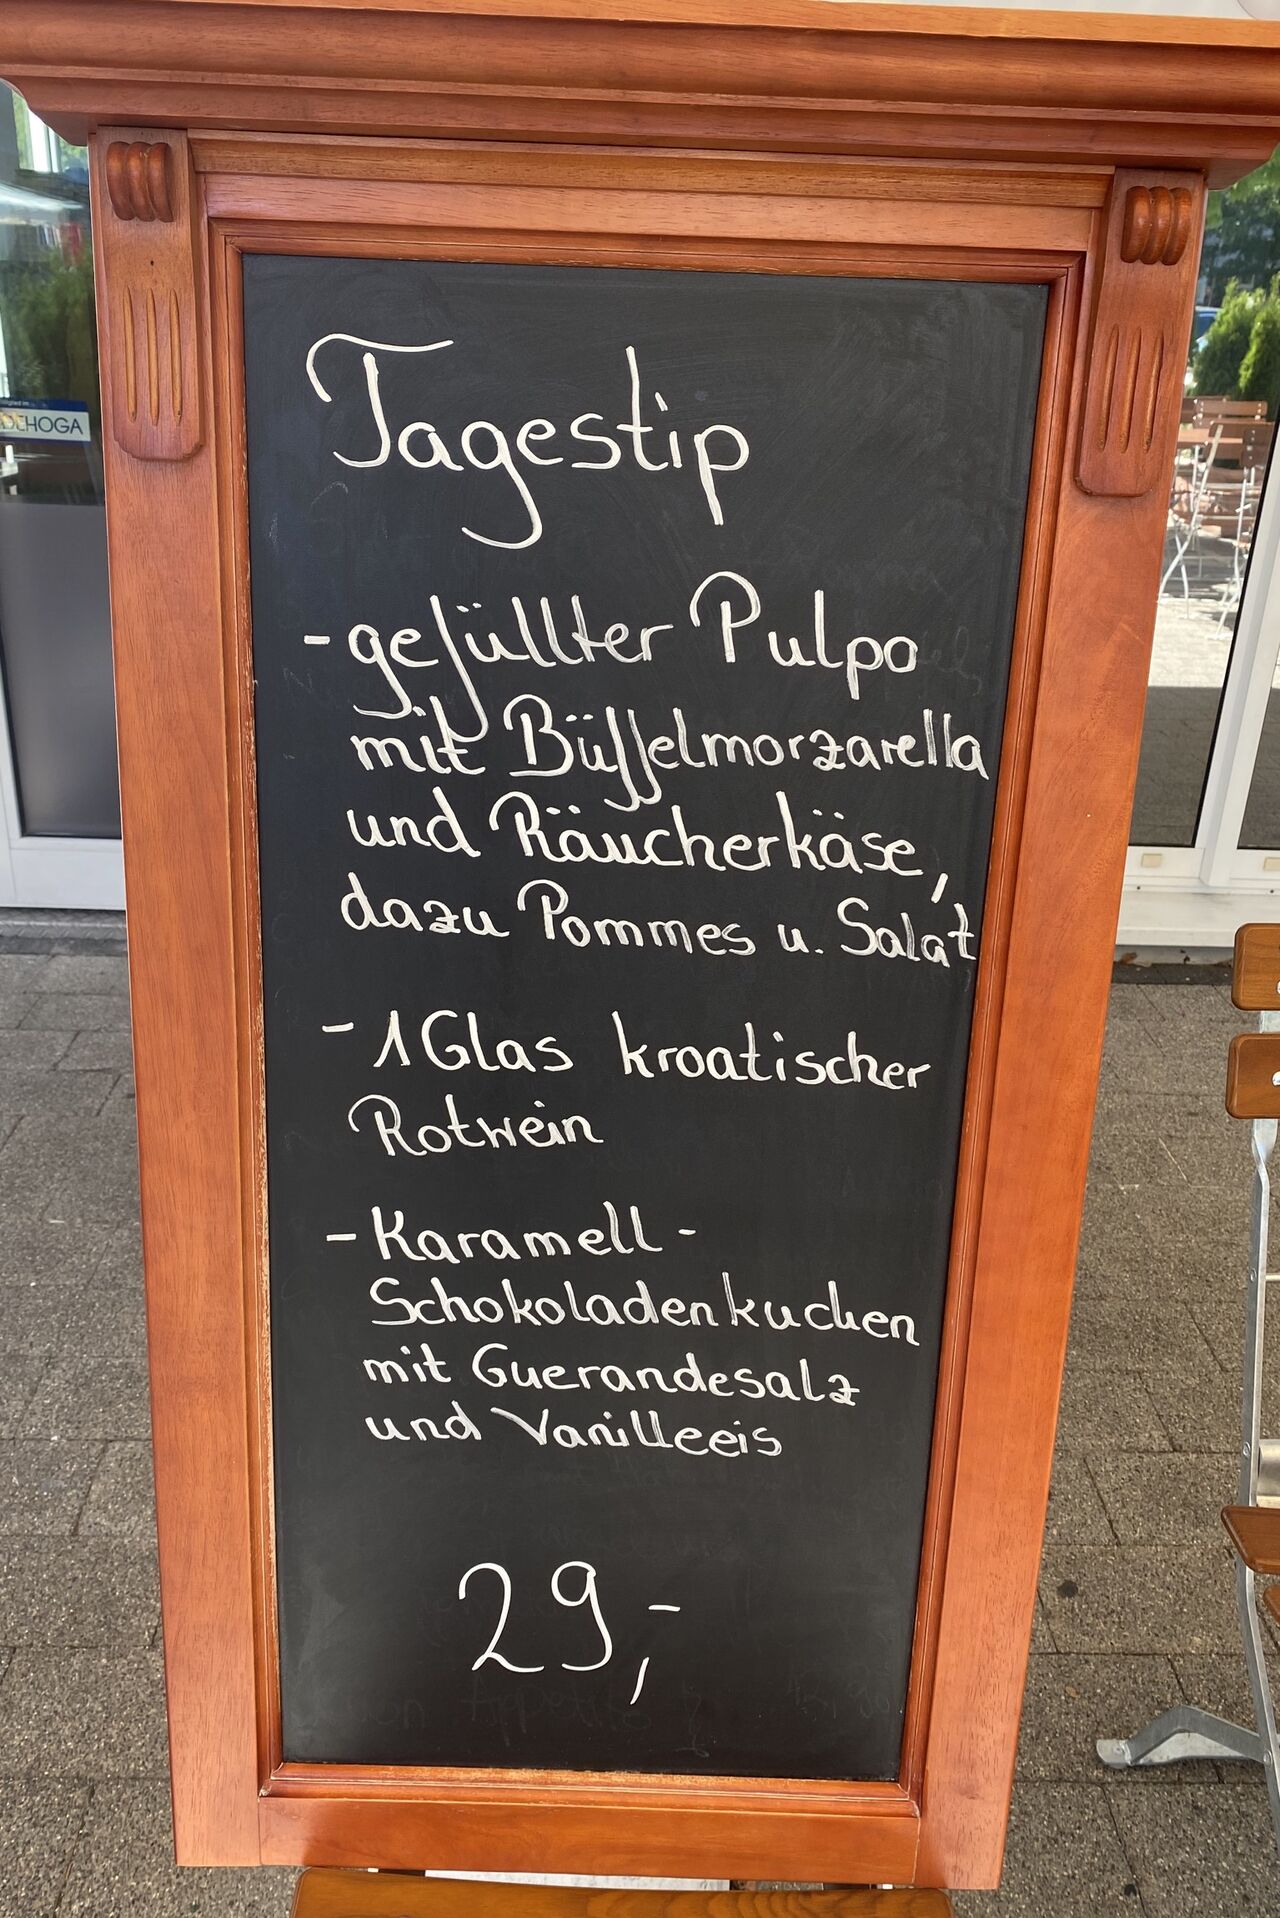 DEHOGA
Tagestip
- gefüllter Pulpo
mit Büffelmorzarella
und Räucherkäse,
dazu Pommes u. Salat
- 1 Glas kroatischer
Rotwein
- Karamell -
Schokoladenkuchen
mit Guerandesalz
und Vanilleeis
29,-